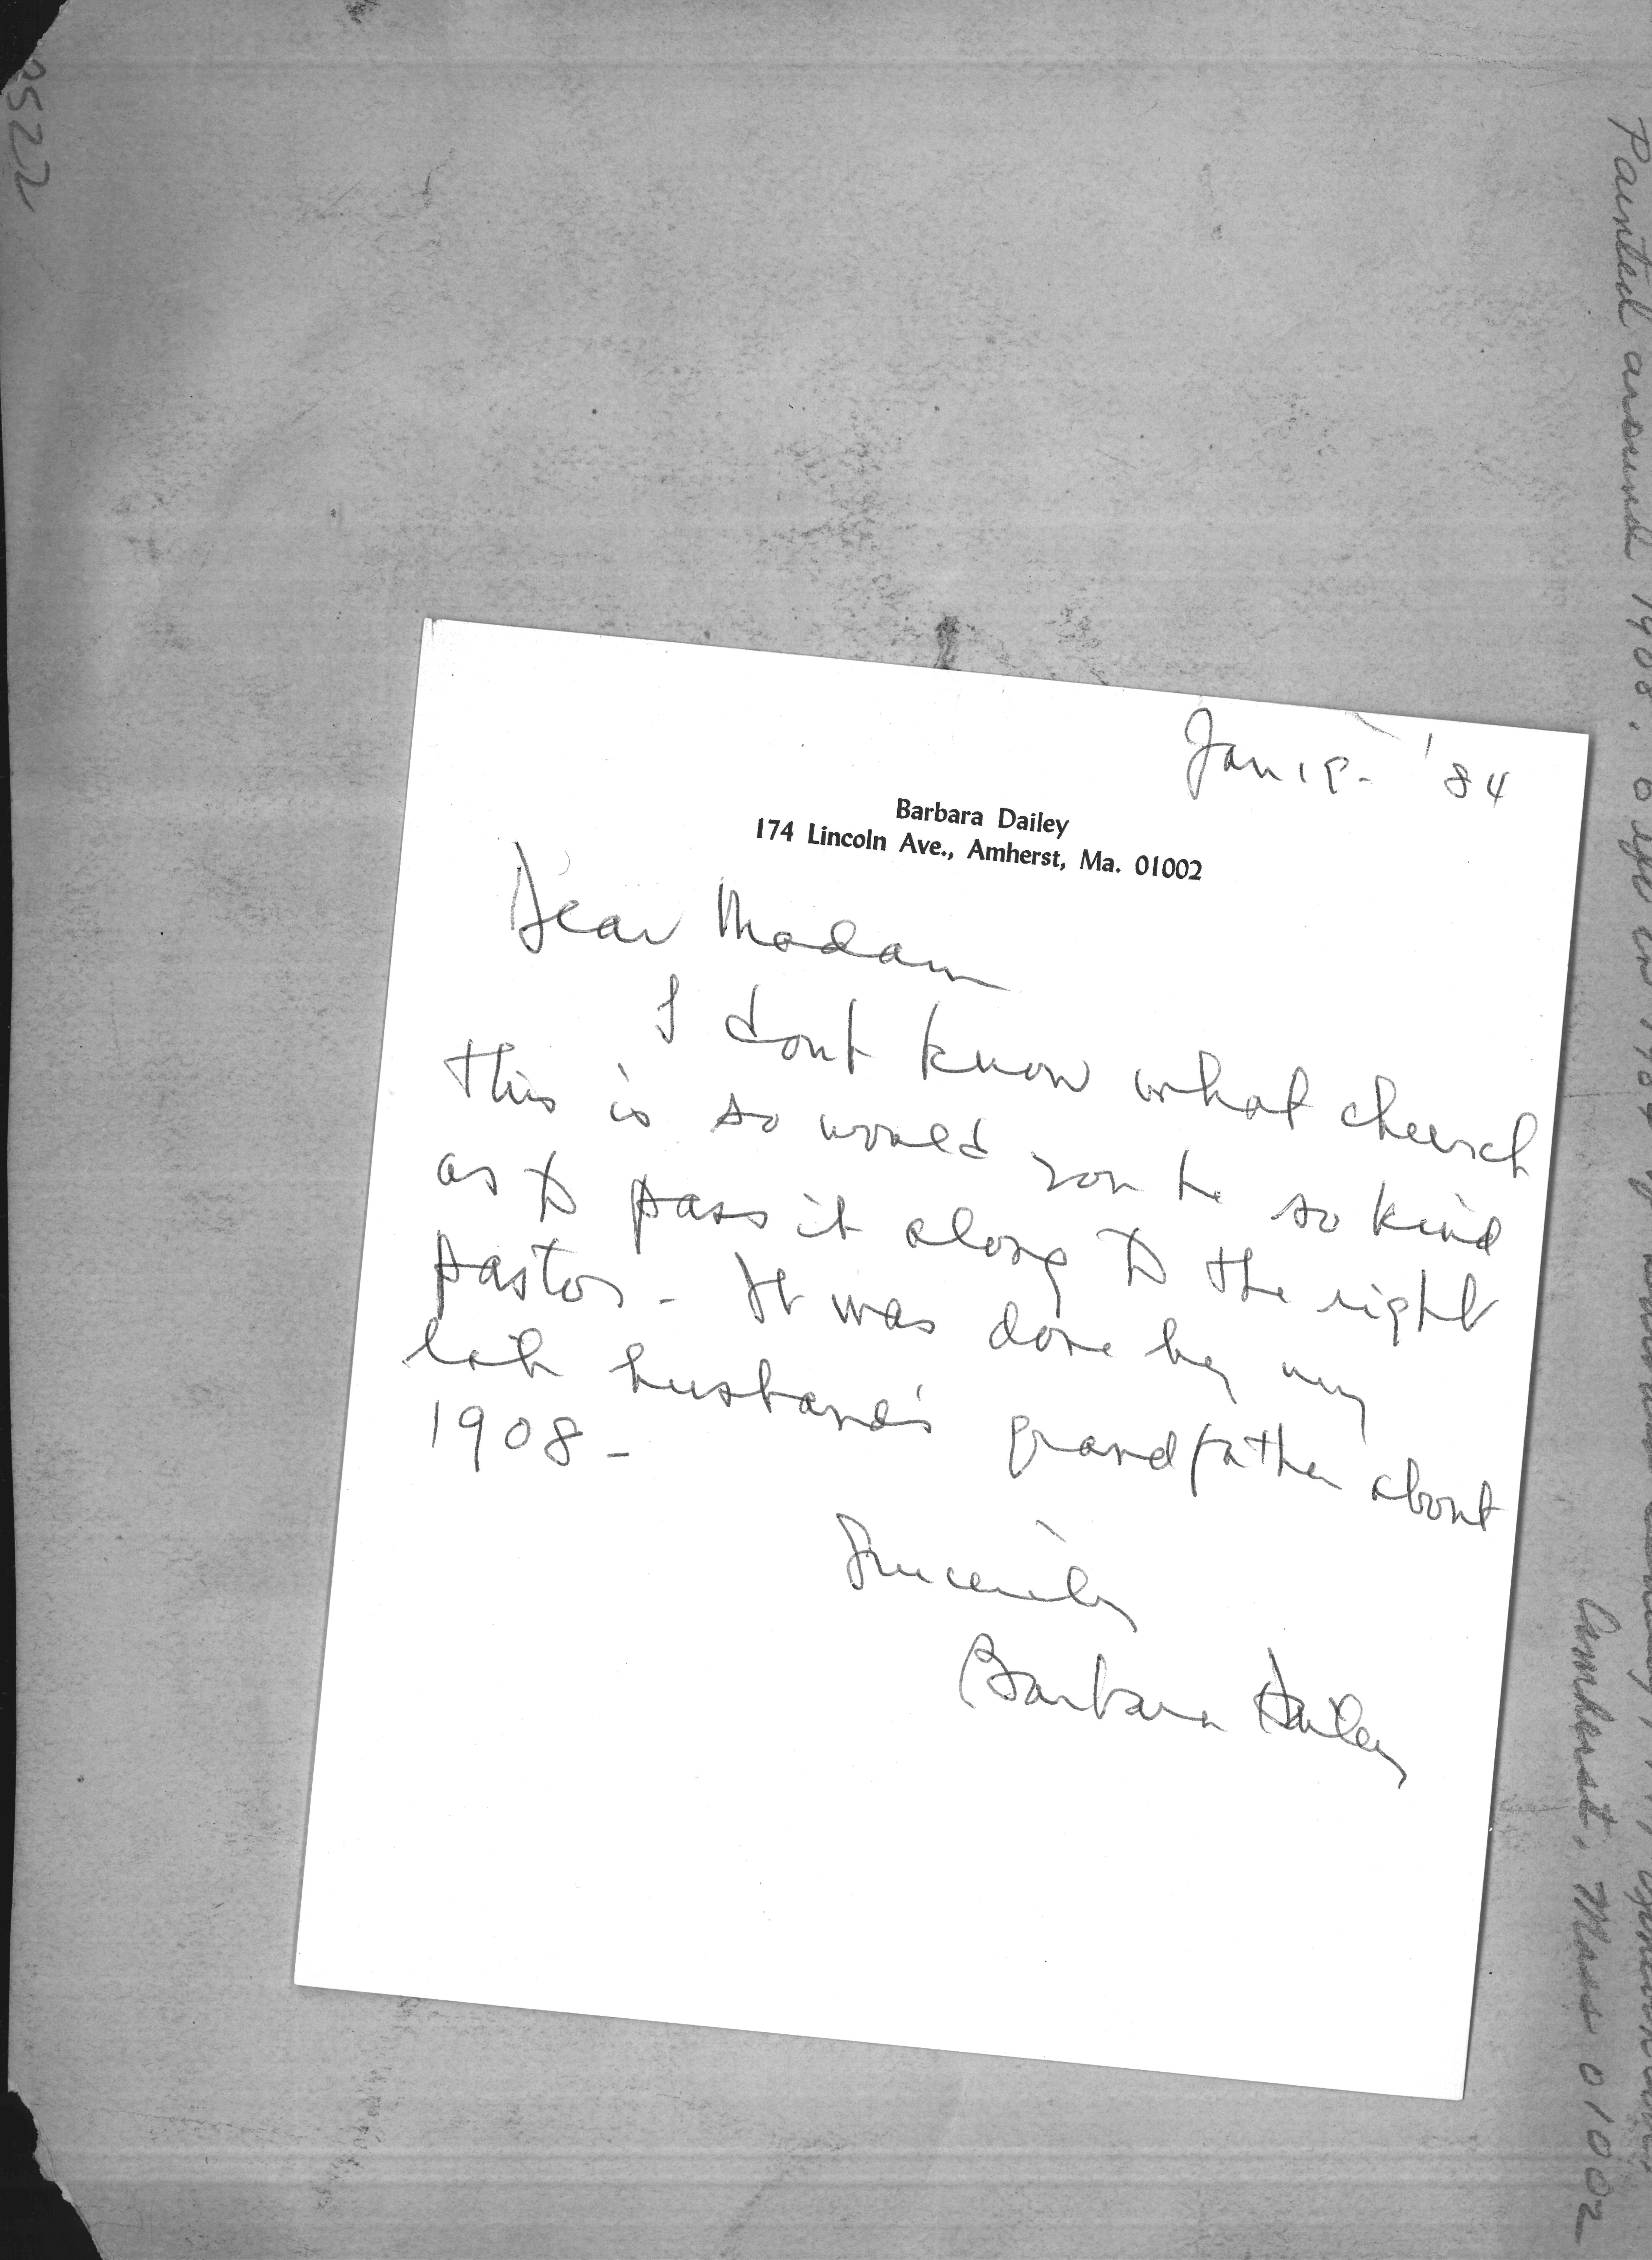 Jan 19- '84
Barbara Dailey
174 Lincoln Ave., Amherst, Ma. 01002
Dear Madam
I dont know what church
this is so would you be so kind
as to pass it along to the right
pastor - It was done by my
late husband's grandfather about
1908 -
Sincerely
Barbara Dailey
Painted around 1908,
Amherst, Mass 01002
2522